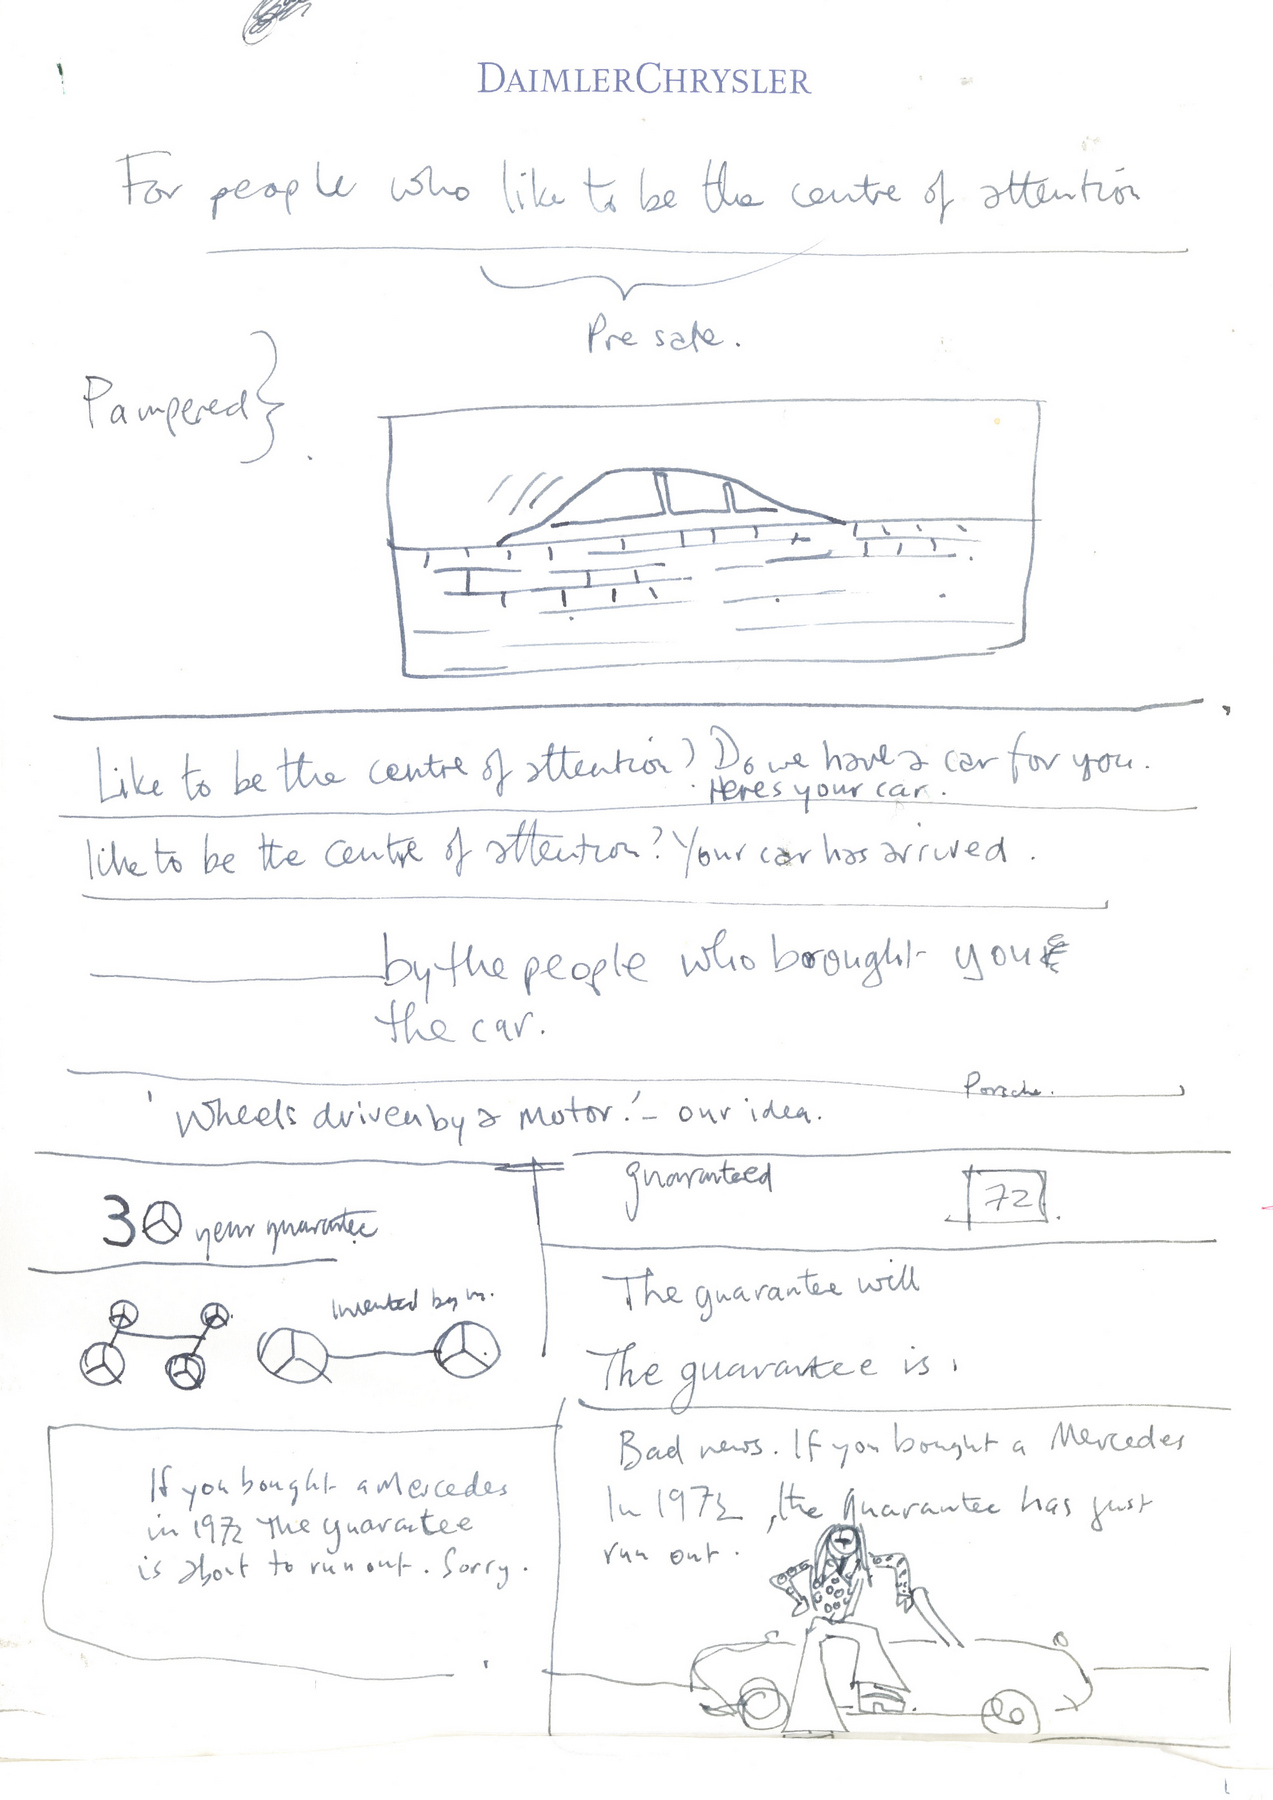 DAIMLERCHRYSLER
For people who like to be the centre of attention
Pre safe.
Pampered}
Like to be the centre of attention? Do we have a car for you.
Heres your car.
like to be the centre of attention? Your car has arrived.
by the people who brought you
the car.
Porsche.
'Wheels driven by a motor.' – our idea.
guaranteed
72
30 year guarantee
The guarantee will
Invented by
The guarantee is
Bad news. If you bought a Mercedes
In 1972, the guarantee has just
run out.
If you bought a Mercedes
in 1972 the guarantee
is about to run out. Sorry.